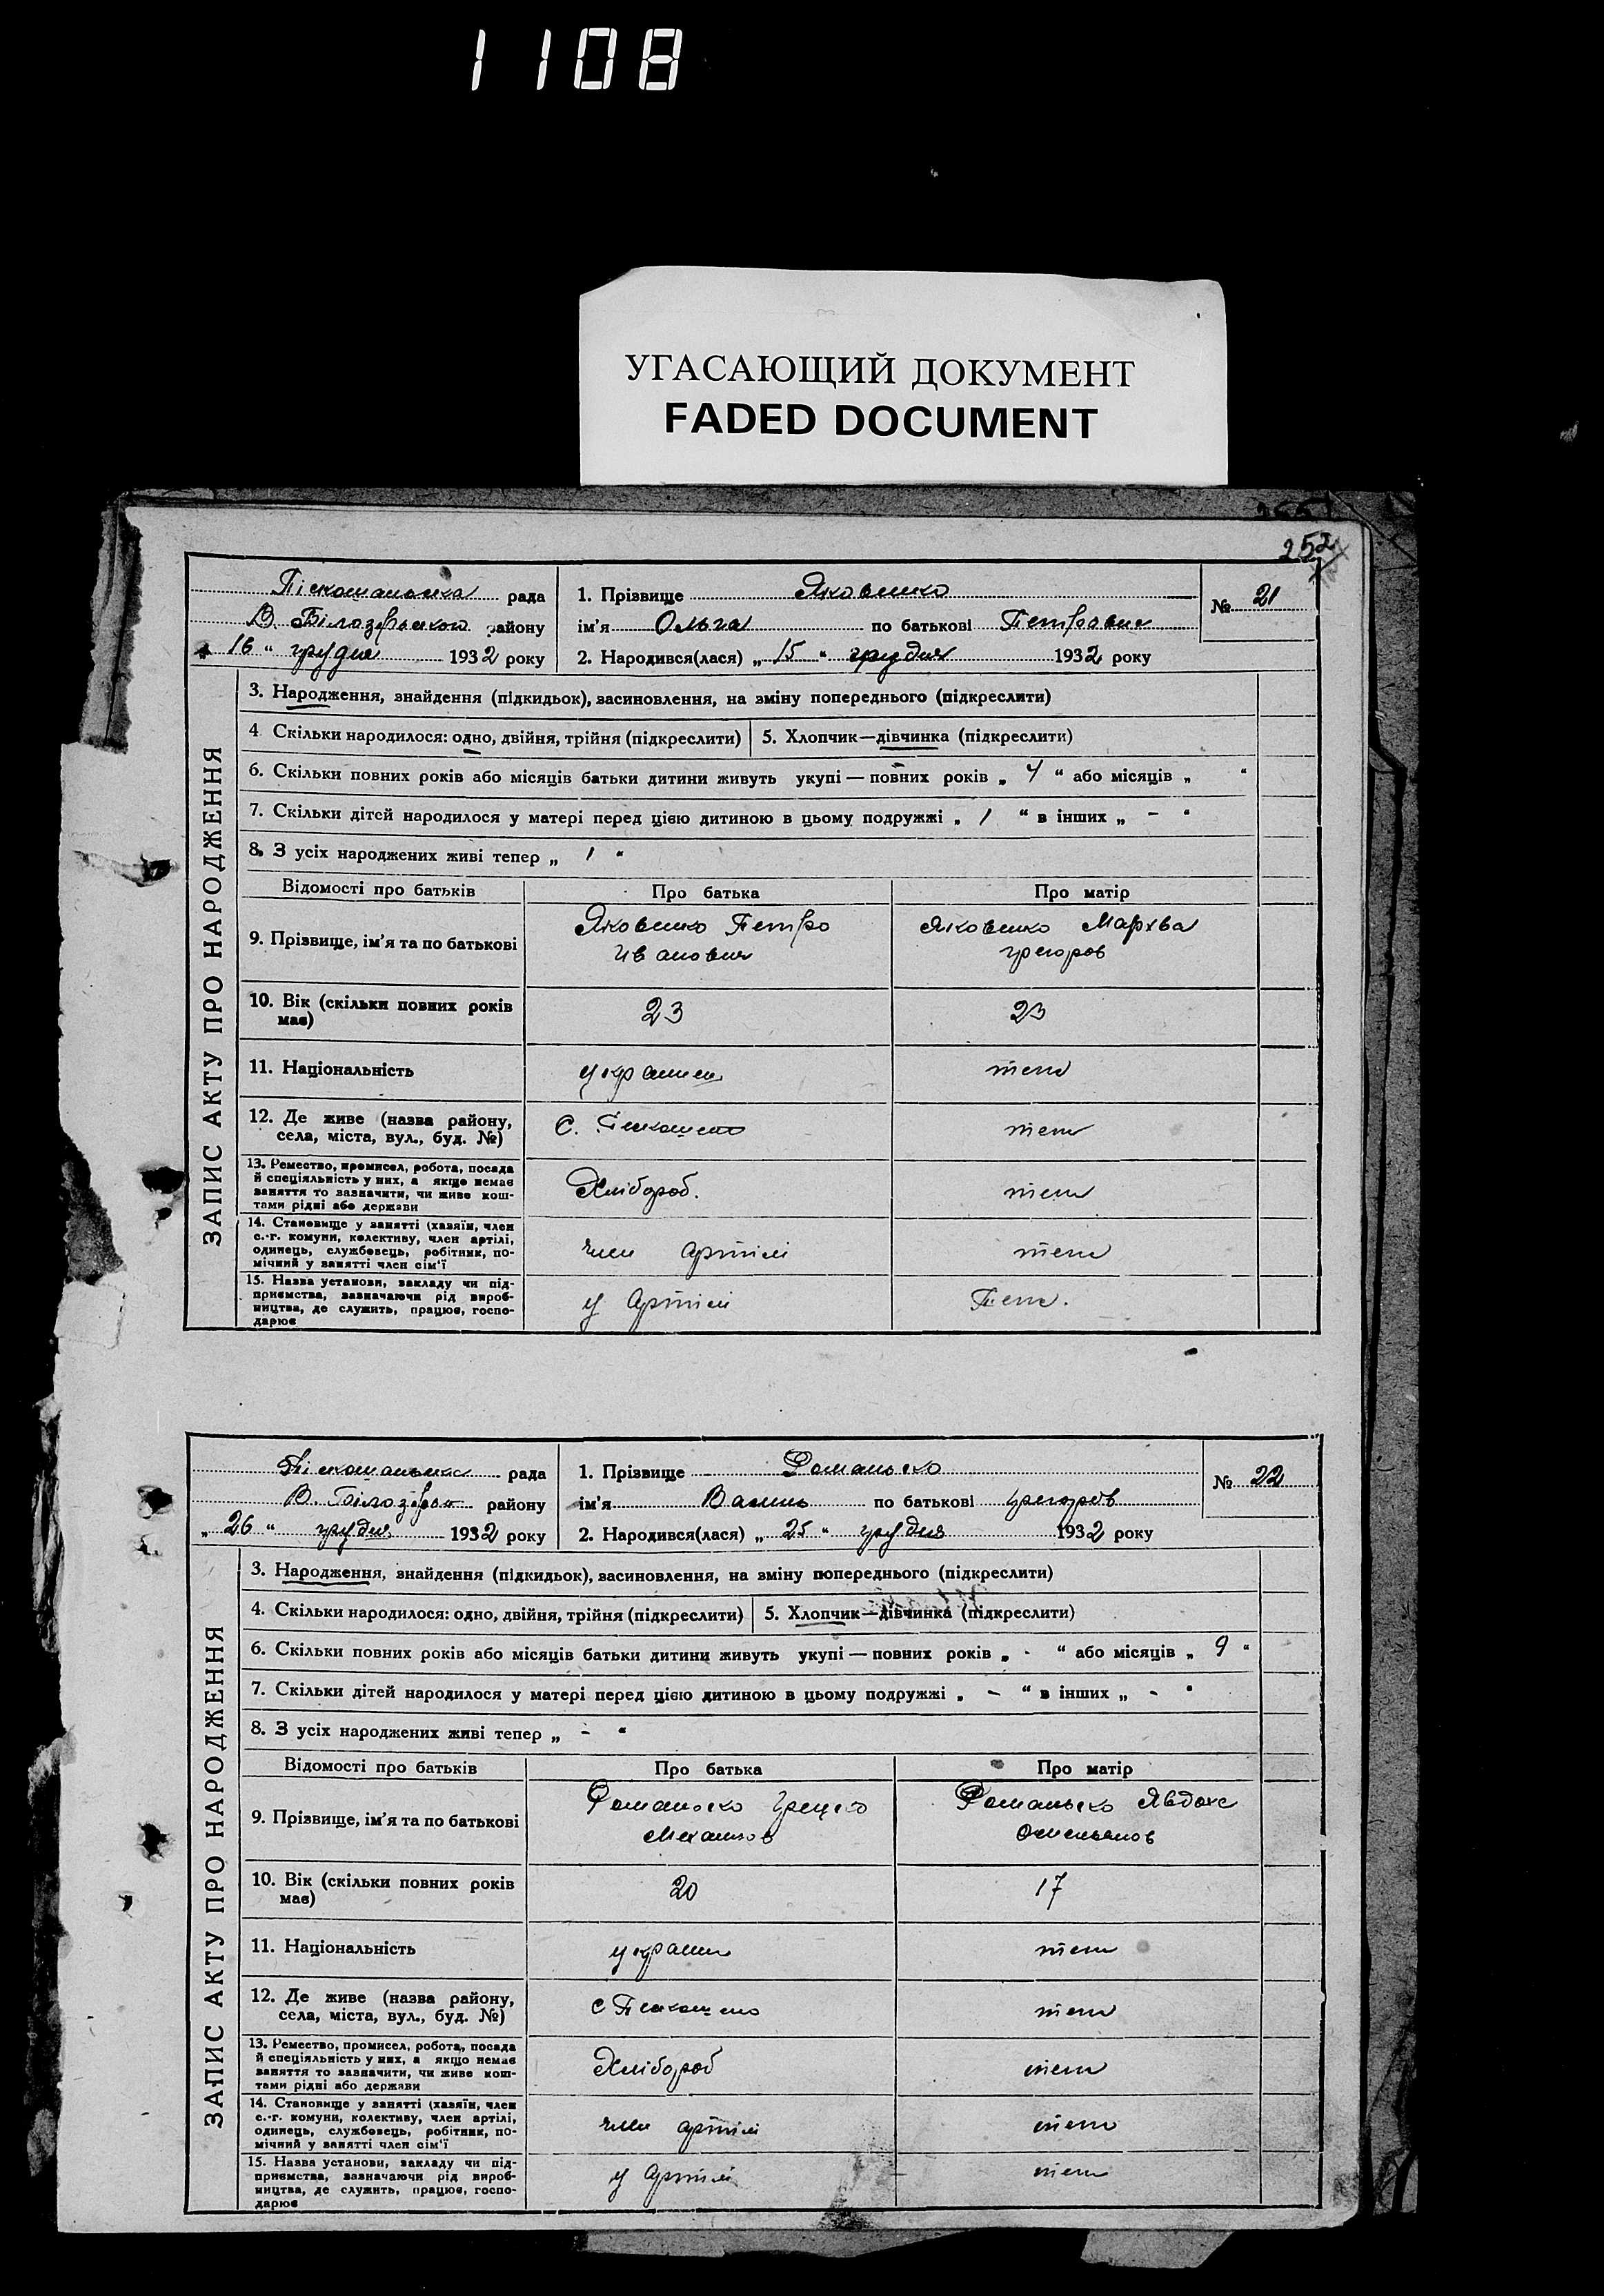 1108
УГАСАЮЩИЙ ДОКУМЕНТ
FADED DOCUMENT
252
рада
В. Білозірського району
16 " грудня 1932 року
1. Прізвище Яковенко
ім'я Ольга по батькові Петровна
№ 21
2. Народився(лася) „ 15 " грудня 1932 року
ЗАПИС АКТУ ПРО НАРОДЖЕННЯ
3. Народження, знайдення (підкидьок), засиновлення, на зміну попереднього (підкреслити)
4 Скільки народилося: одно, двійня, трійня (підкреслити) 5. Хлопчик—дівчинка (підкреслити)
6. Скільки повних років або місяців батьки дитини живуть укупі — повних років „ 4 " або місяців „ "
7. Скільки дітей народилося у матері перед цією дитиною в цьому подружжі „ 1 " в інших „ - "
8. З усіх народжених живі тепер „ 1 "
Відомості про батьків Про батька Про матір
9. Прізвище, ім'я та по батькові
Яковенко Петро
Иванович
Яковенко Мархва
григоров
10. Вік (скільки повних років має) 23 23
11. Національність украинец теж
12. Де живе (назва району,
села, міста, вул., буд. №)
С. теж
13. Ремество, промисел, робота, посада
й спеціяльність у них, а якщо немає
заняття то зазначити, чи живе кош-
тами рідні або держави
Хлібороб. теж
14. Становище у занятті (хазяїн, член
с.-г. комуни, колективу, член артілі,
одинець, службовець, робітник, по-
мічний у занятті член сім'ї
член артілі теж
15. Назва установи, закладу чи під-
приємства, зазначаючи рід вироб-
ництва, де служить, працює, госпо-
дарює
у Артілі теж.
рада
В. Білозірсько району
„ 26 " грудня 1932 року
1. Прізвище Романько
ім'я по батькові григоров
№ 22
2. Народився(лася) „ 25 " грудня 1932 року
ЗАПИС АКТУ ПРО НАРОДЖЕННЯ
3. Народження, знайдення (підкидьок), засиновлення, на зміну попереднього (підкреслити)
4. Скільки народилося: одно, двійня, трійня (підкреслити) 5. Хлопчик—дівчинка (підкреслити)
6. Скільки повних років або місяців батьки дитини живуть укупі — повних років „ - " або місяців „ 9 "
7. Скільки дітей народилося у матері перед цією дитиною в цьому подружжі „ - " в інших „ - "
8. З усіх народжених живі тепер „ - "
Відомості про батьків Про батька Про матір
9. Прізвище, ім'я та по батькові
Романько Грицько
Михайлов
Романько Явдоха
Омельянов
10. Вік (скільки повних років
має)
20 17
11. Національність украин теж
12. Де живе (назва району,
села, міста, вул., буд. №)
С теж
13. Ремество, промисел, робота, посада
й спеціяльність у них, а якщо немає
заняття то зазначити, чи живе кош-
тами рідні або держави
Хлібороб теж
14. Становище у занятті (хазяїн, член
с.-г. комуни, колективу, член артілі,
одинець, службовець, робітник, по-
мічний у занятті член сім'ї
член артілі теж
15. Назва установи, закладу чи під-
приємства, зазначаючи рід вироб-
ництва, де служить, працює, госпо-
дарює
у Артілі теж